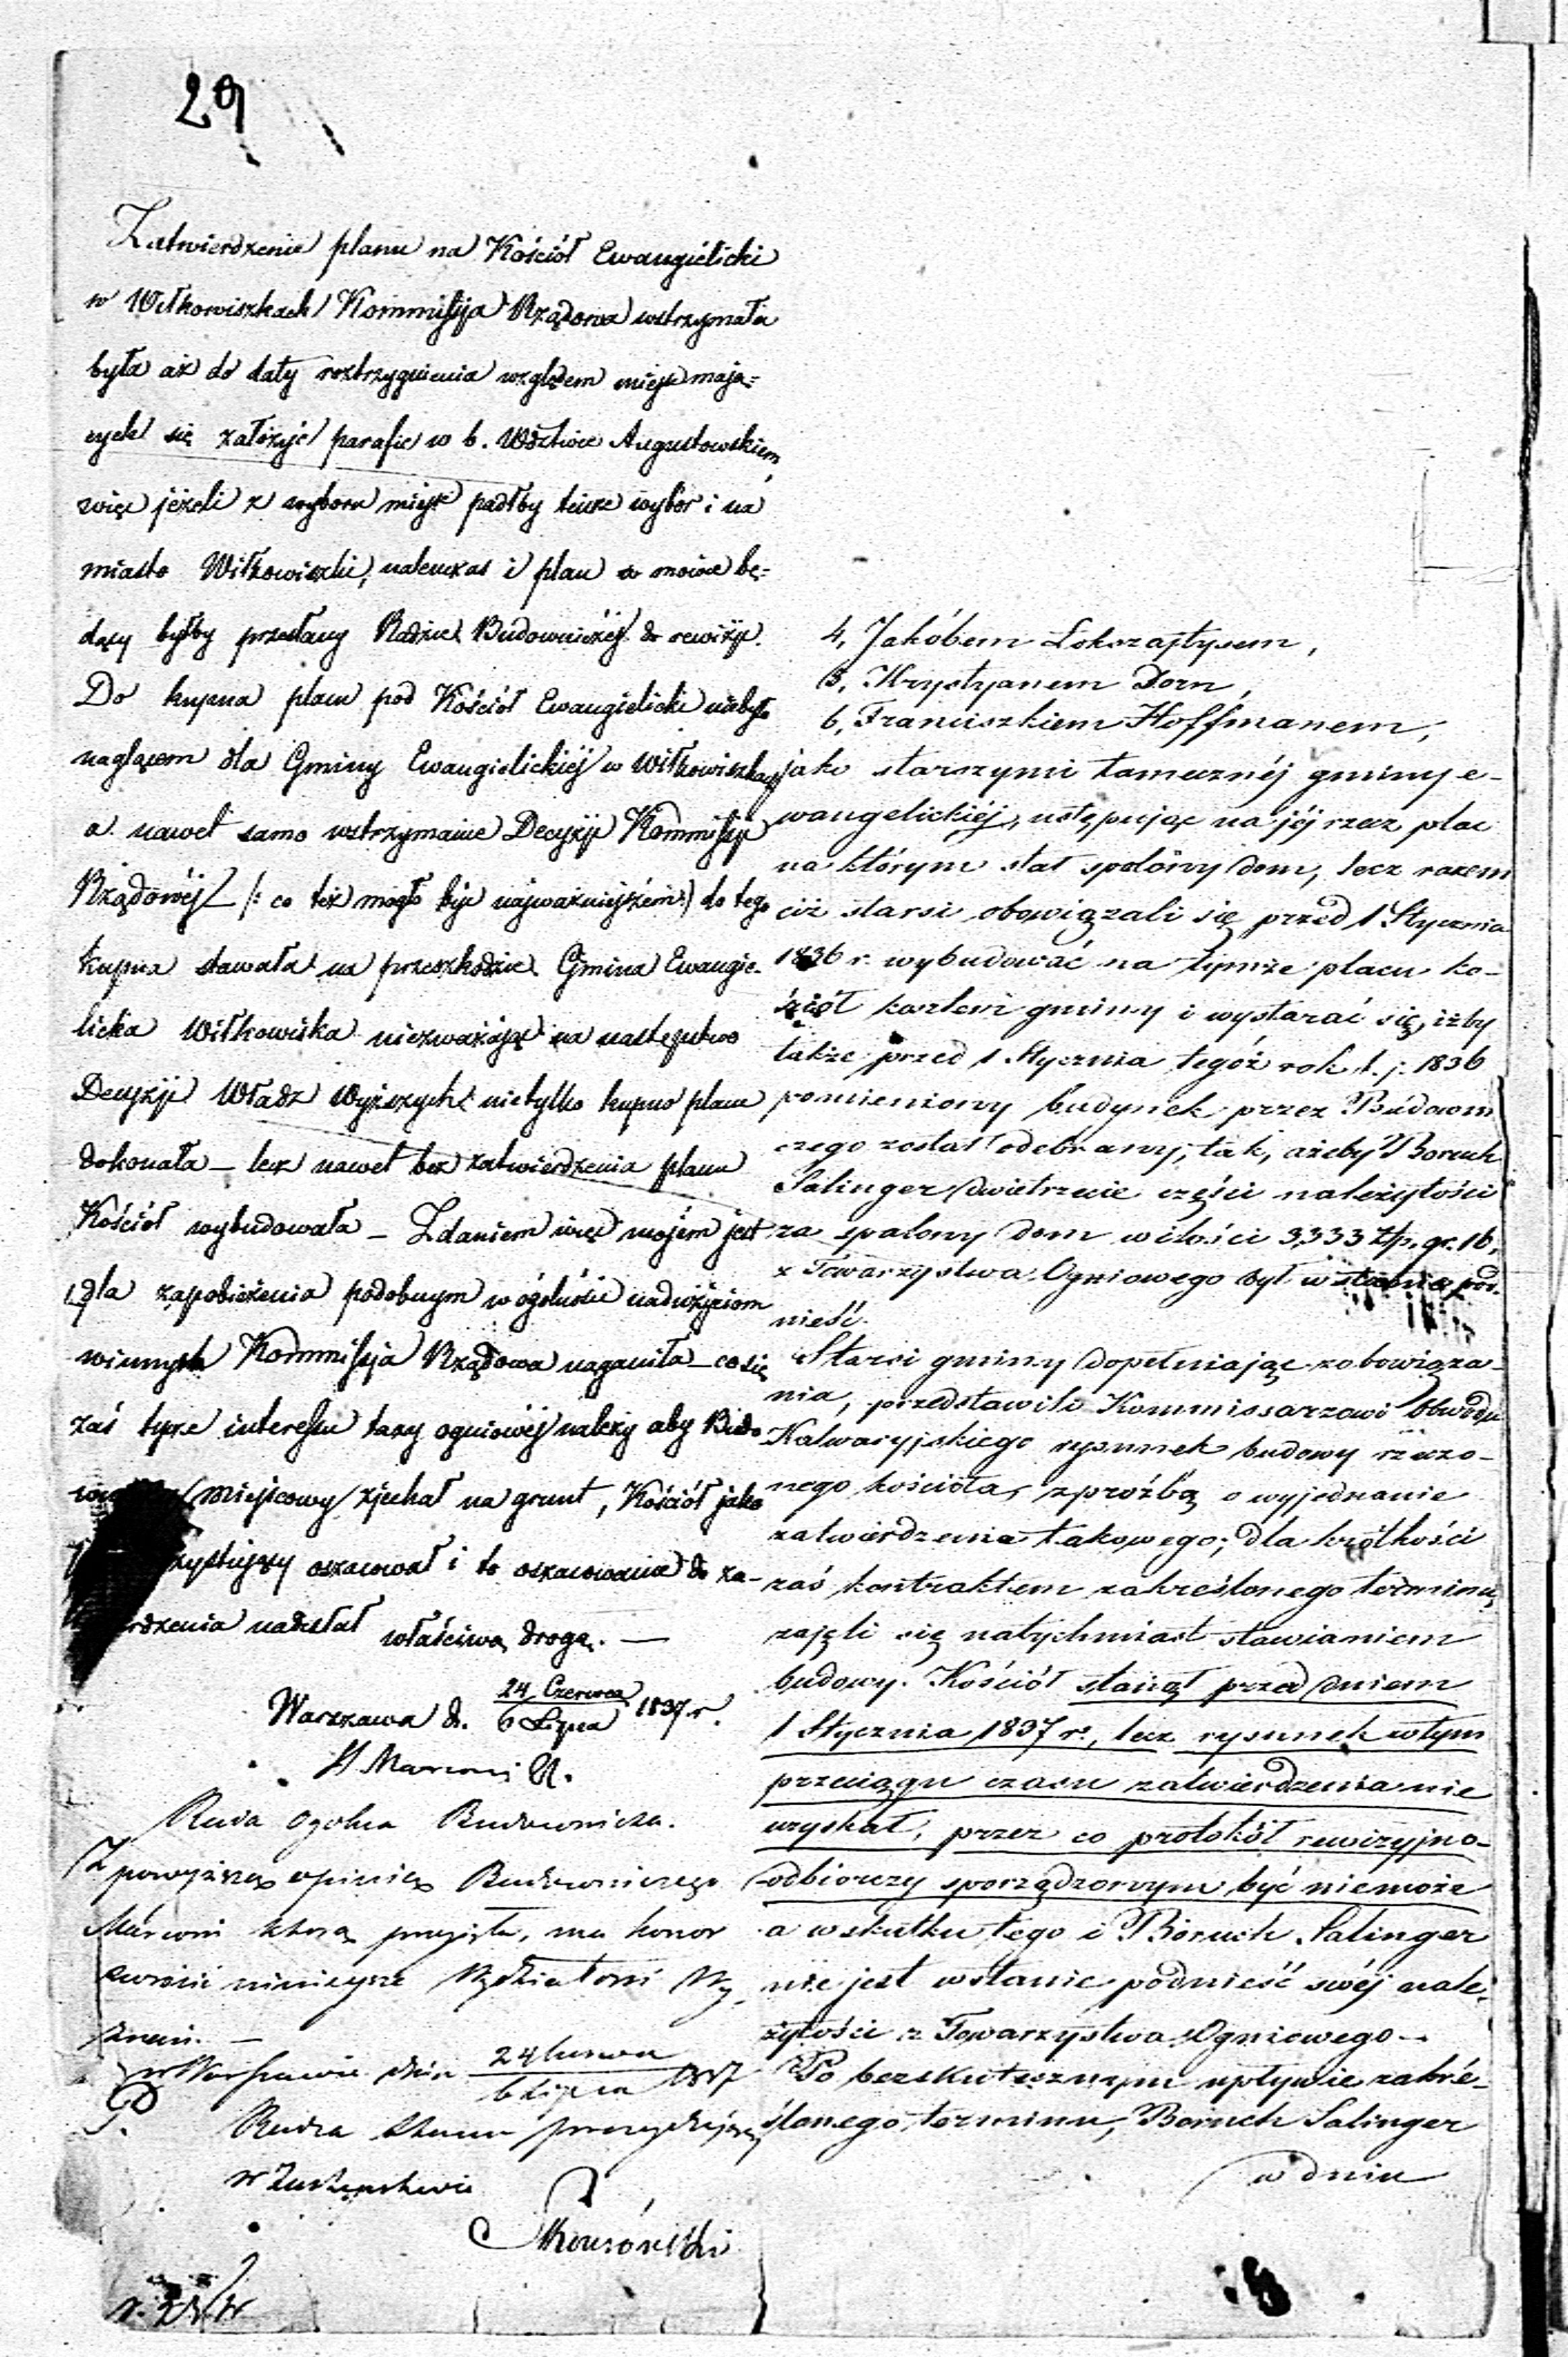 29
Zatwierdzenie planu na Kościół Ewangielicki
w Wiłkowiszkach Kommissyja Rządowa wstrzymała
była aż do daty roztrzygnienia względem miejsc mają=
cych się założyć parafie w b. Wdztwie Augustowskiem
więc jeżeli z wyboru miejsc padłby tenże wybór i na
miasto Wiłkowiszki, natenczas i plan w mowie bę=
dący byłby przesłany Radzie Budowniczéj do rewizji.
Do kupna placu pod Kościół Ewangielicki niebyło
naglącem dla Gminy Ewangielickiéj w Wiłkowiszkach
a nawet samo wstrzymanie Decyzji Kommissji
Rządowéj /: co też mogło być najważniejszém :/ do tego
kupna stawała na przeszkodzie. Gmina Ewangie-
licka Wiłkowiska niezważając na następstwo
Decyzji Władz Wyższych nietylko kupno placu
dokonała – lecz nawet bez zatwierdzenia planu
Kościół wybudowała – Zdaniem więc mojém jest
dla zapobieżenia podobnym w ogólności nadużyciom
winnych Kommissyja Rządowa naganiła – co się
zaś tycze interessu taxy ogniowéj należy aby Budo
miejscowy zjechał na grunt, Kościół jako
oszacował i to oszacowanie do za-
nadesłał właściwą drogą. —
Warszawa d. 24 Czerwca / 6 Lipca 1837 r.
H Marconi B.
Rada Ogólna Budownicza.
Z powyższą opinią Budowniczego
Marconi którą przyjęła, ma honor
zwrócić niniejsze Wydziałowi Wy-
znań. —
w Warszawie dnia 24 Czerwca / 6 Lipca 1837
P. Radca Stanu prezydujący
w Zastępstwie
4, Jakóbem Lokszajtysem,
5, Krystyanem Dorn,
6, Franciszkiem Hoffmanem,
jako starszymi tamecznéj gminy e-
wangelickiéj, ustępując na jéj rzecz plac
na którym stał spalony dom, lecz razem
ciż starsi obowiązali się przed 1 Stycznia
1836 r. wybudować na tymże placu ko-
ściół kosztem gminy i wystarać się, iżby
także przed 1 Stycznia tegóż rok t. j. 1836
pomieniony budynek przez Budowni
czego został odebrany, tak, ażeby Boruch
Salinger dwietrzecie części należytości
za spalony dom w ilości 3,333 złp. gr. 16,
z Towarzystwa Ogniowego był w stanie pod-
nieść.
Starsi gminy dopełniając zobowiąza-
nia, przedstawili Kommissarzowi Obwodu
Kalwaryjskiego rysunek budowy rzeczo-
nego kościoła, z prośbą o wyjednanie
zatwierdzenia takowego; dla krótkości
zaś kontraktem zakreślonego terminu,
zajęli się natychmiast stawianiem
budowy. Kościół stanął przed dniem
1 Stycznia 1837 r., lecz rysunek w tym
przeciągu czasu zatwierdzenia nie
uzyskał, przez co protokół rewizyjno-
odbiorczy sporządzonym być niemoże
a w skutku tego i Boruch Salinger
nie jest w stanie podnieść swéj nale-
żytości z Towarzystwa Ogniowego –
Po bezskutecznym upływie zakré-
ślonego terminu, Boruch Salinger
w dniu